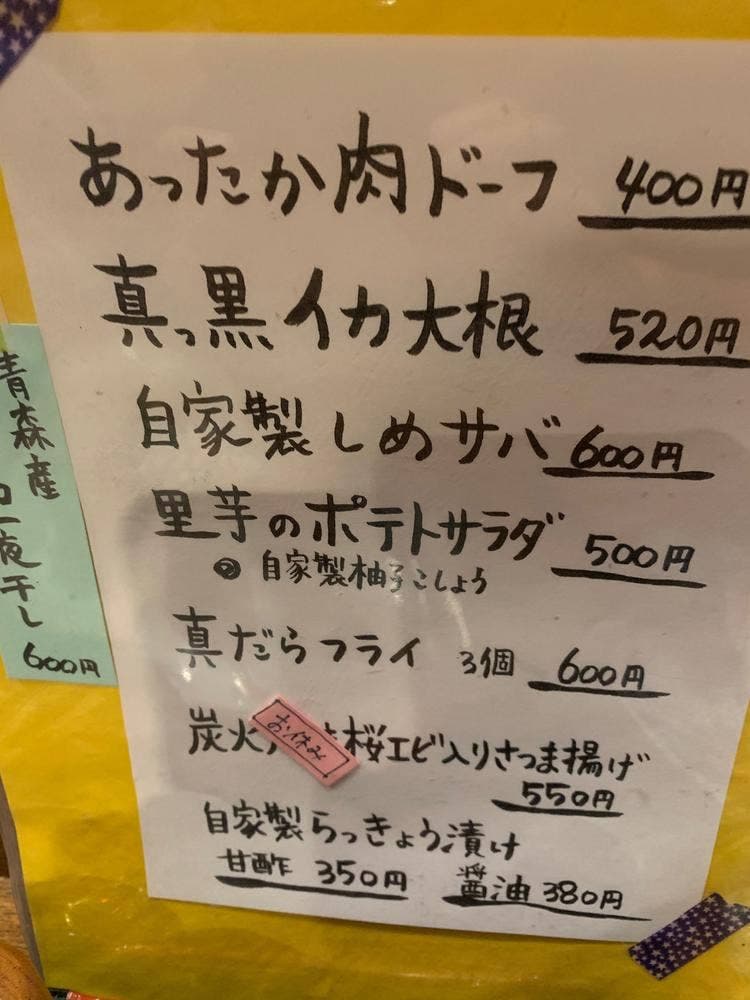 あったか肉ドーフ 400円
真っ黒イカ大根 520円
自家製しめサバ 600円
里芋のポテトサラダ 500円
自家製柚子こしょう
真だらフライ 3個 600円
炭火 桜エビ入りさつま揚げ
お休み
550円
自家製らっきょう漬け
甘酢 350円 醤油 380円
青森産
一夜干し
600円